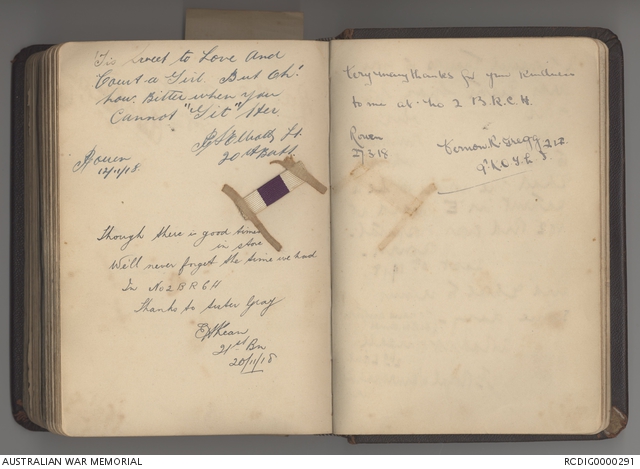 'Tis sweet to Love And
Court a Girl. But Oh!
how. Bitter when you
Cannot "Git" Her.
Lt.
20th Batt.
Rouen
12/11/18.
Though there is good times
in store
Will never forget the time we had
In No 2 B R C H
Thanks to Sister Gray
Kean
21st Bn
20/11/18
Very many thanks for your kindness
to me at No 2 B.R.C.H.
Rouen
2/3/18
Vernon R. Gregg
AUSTRALIAN WAR MEMORIAL
RCDIG0000291